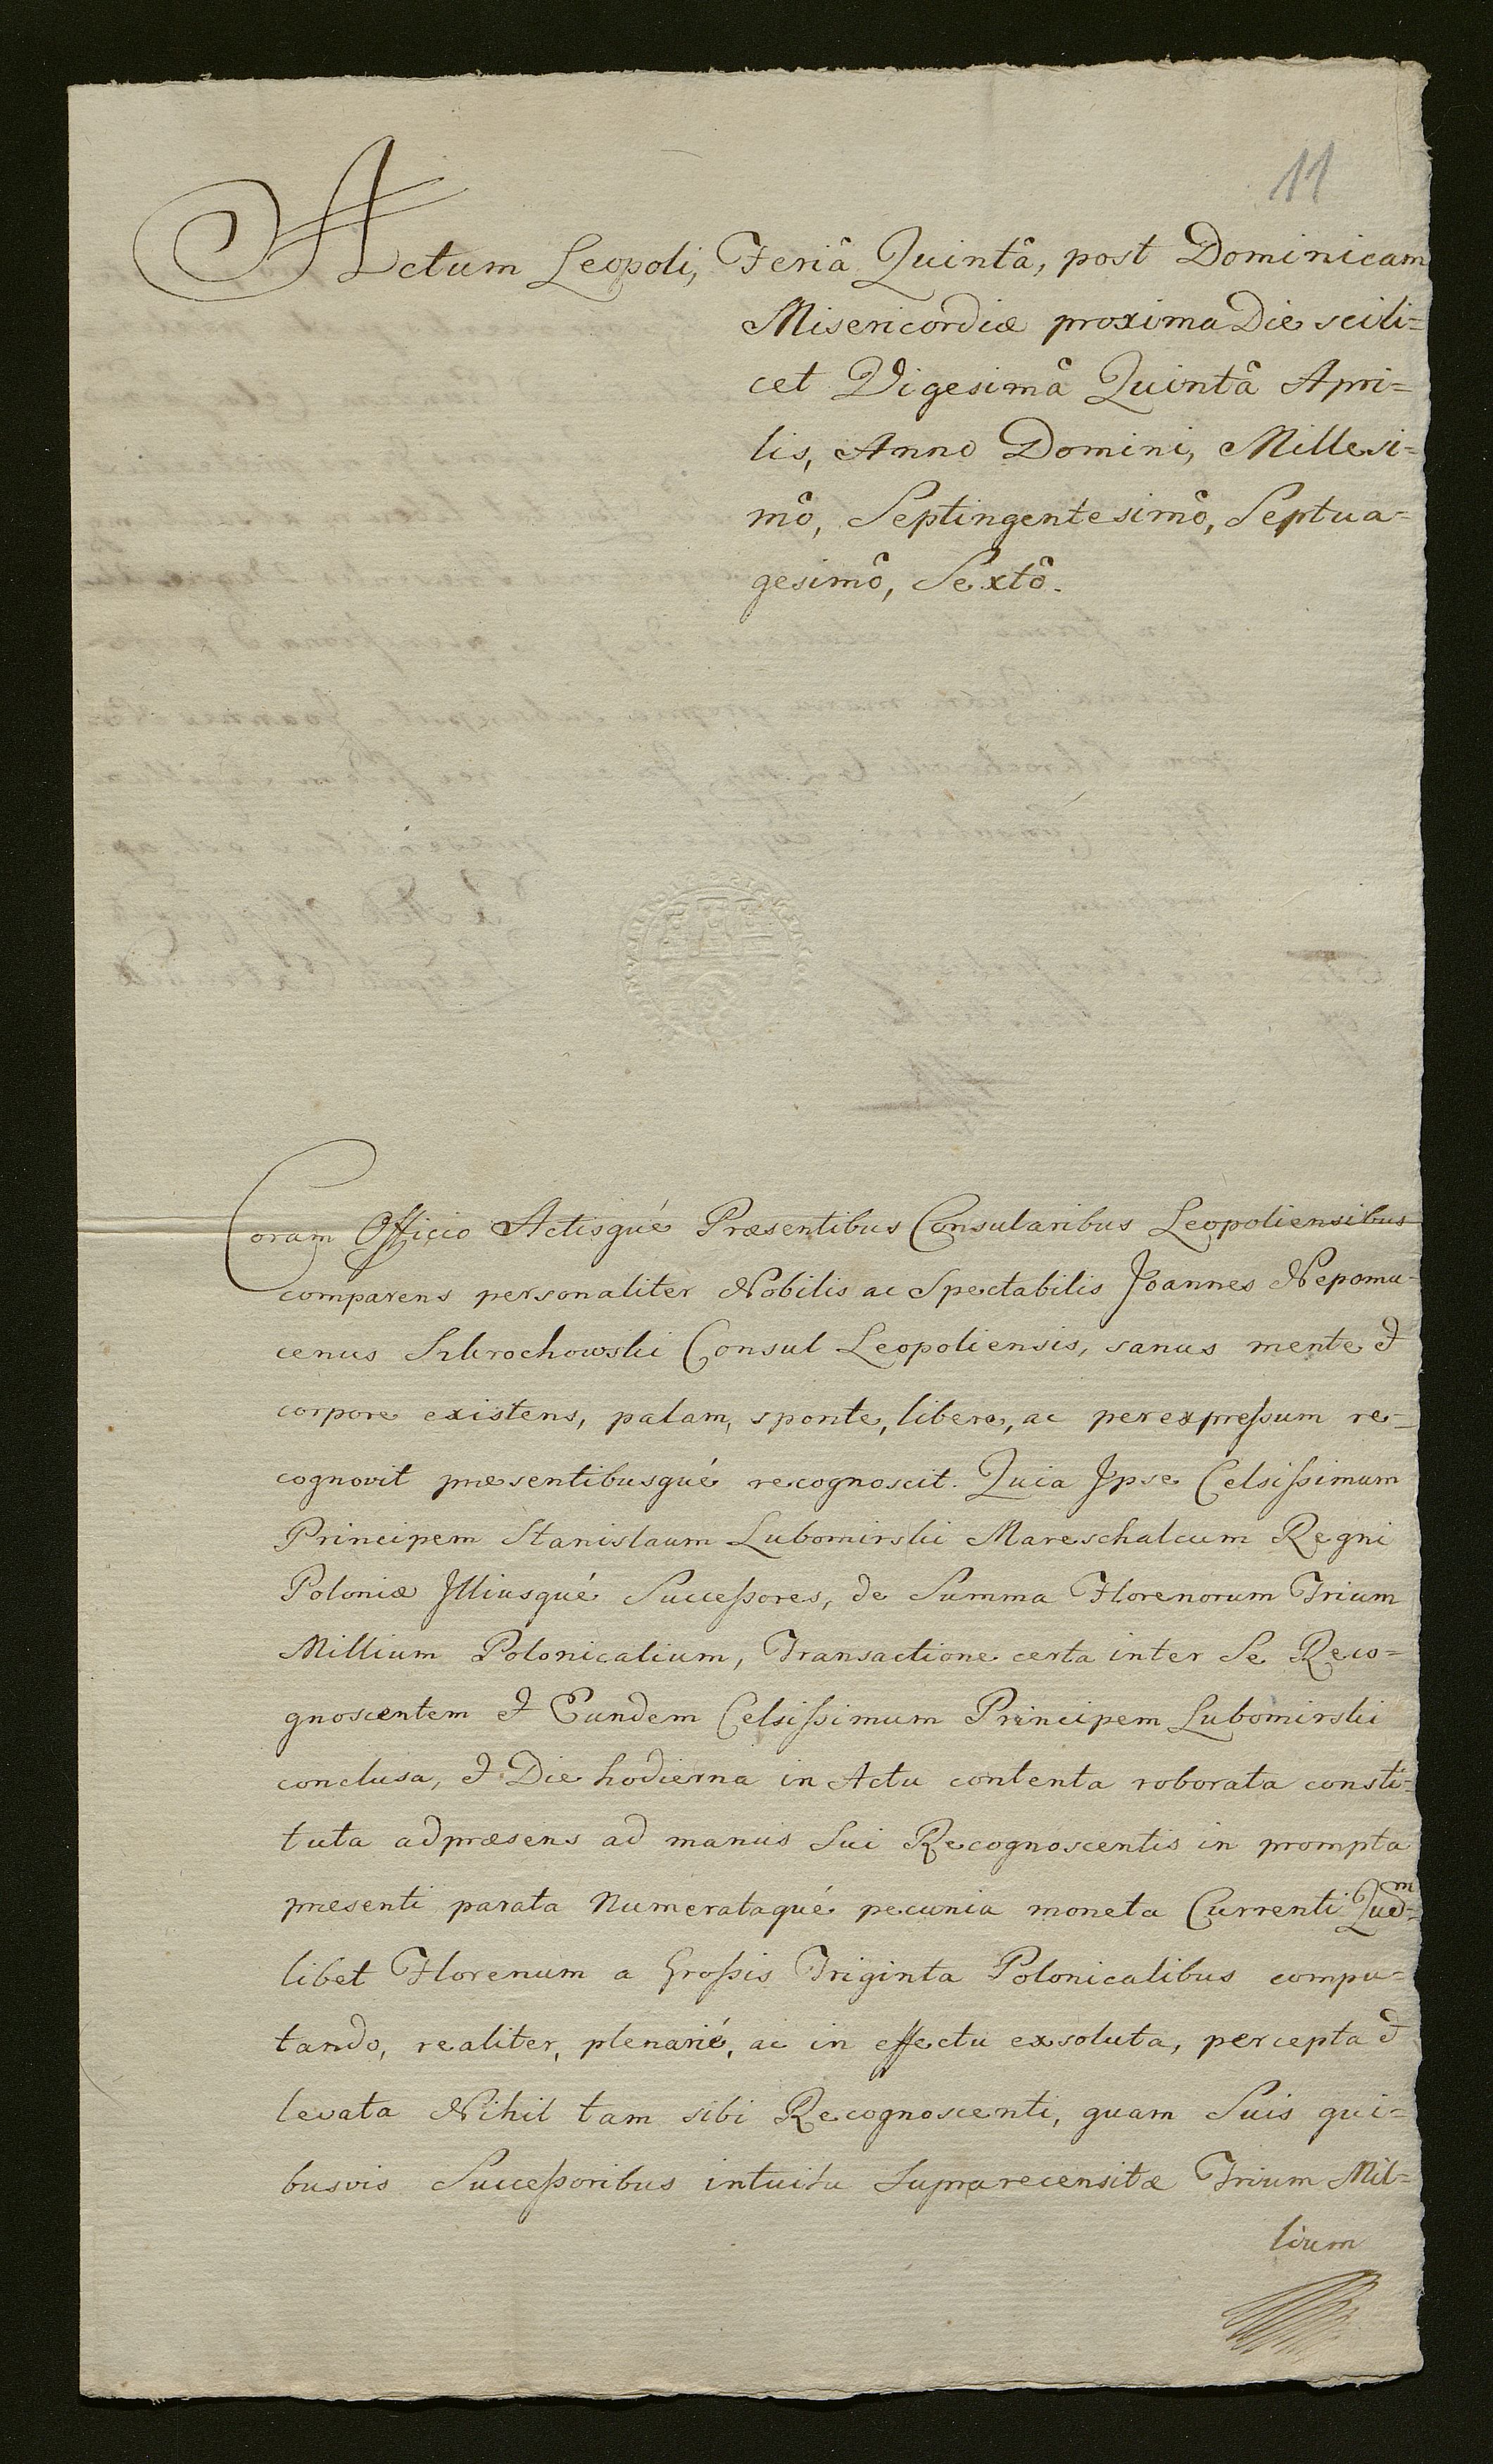 11
Actum Leopoli, Feriâ Quintâ, post Dominicam
Misericordiæ proxima Die scili=
cet Vigesimâ Quintâ Apri=
lis, Anno Domini, Millesi=
mô, Septingentesimô, Septua=
gesimô, Sextô.
Coram Officio Actisqué Præsentibus Consularibus Leopoliensibus
comparens personaliter Nobilis ac Spectabilis Joannes Nepomu=
cenus Szkrochowski Consul Leopoliensis, sanus mente et
corpore existens, palam, sponte, libere, ac per expreſsum re=
cognovit præsentibusqué recognoscit. Quia Ipse Celsiſsimum
Principem Stanislaum Lubomirski Mareschalcum Regni
Poloniæ Illiusqué Succeſsores, de Summa Florenorum Trium
Millium Polonicalium, Transactione certa inter Se Reco=
gnoscentem et Eundem Celsiſsimum Principem Lubomirski
conclusa, et Die hodierna in Actu contenta roborata consti=
tuta ad præsens ad manus Sui Recognoscentis in prompta
præsenti parata Numerataqué pecunia moneta Currenti Quemd=
libet Florenum a Groſsis Triginta Polonicalibus compu=
tando, realiter, plenarié, ac in effectu exsoluta, percepta et
levata Nihil tam sibi Recognoscenti, quam Suis qui=
busvis Succeſsoribus intuitu Suprarecensitæ Trium Mil=
lium